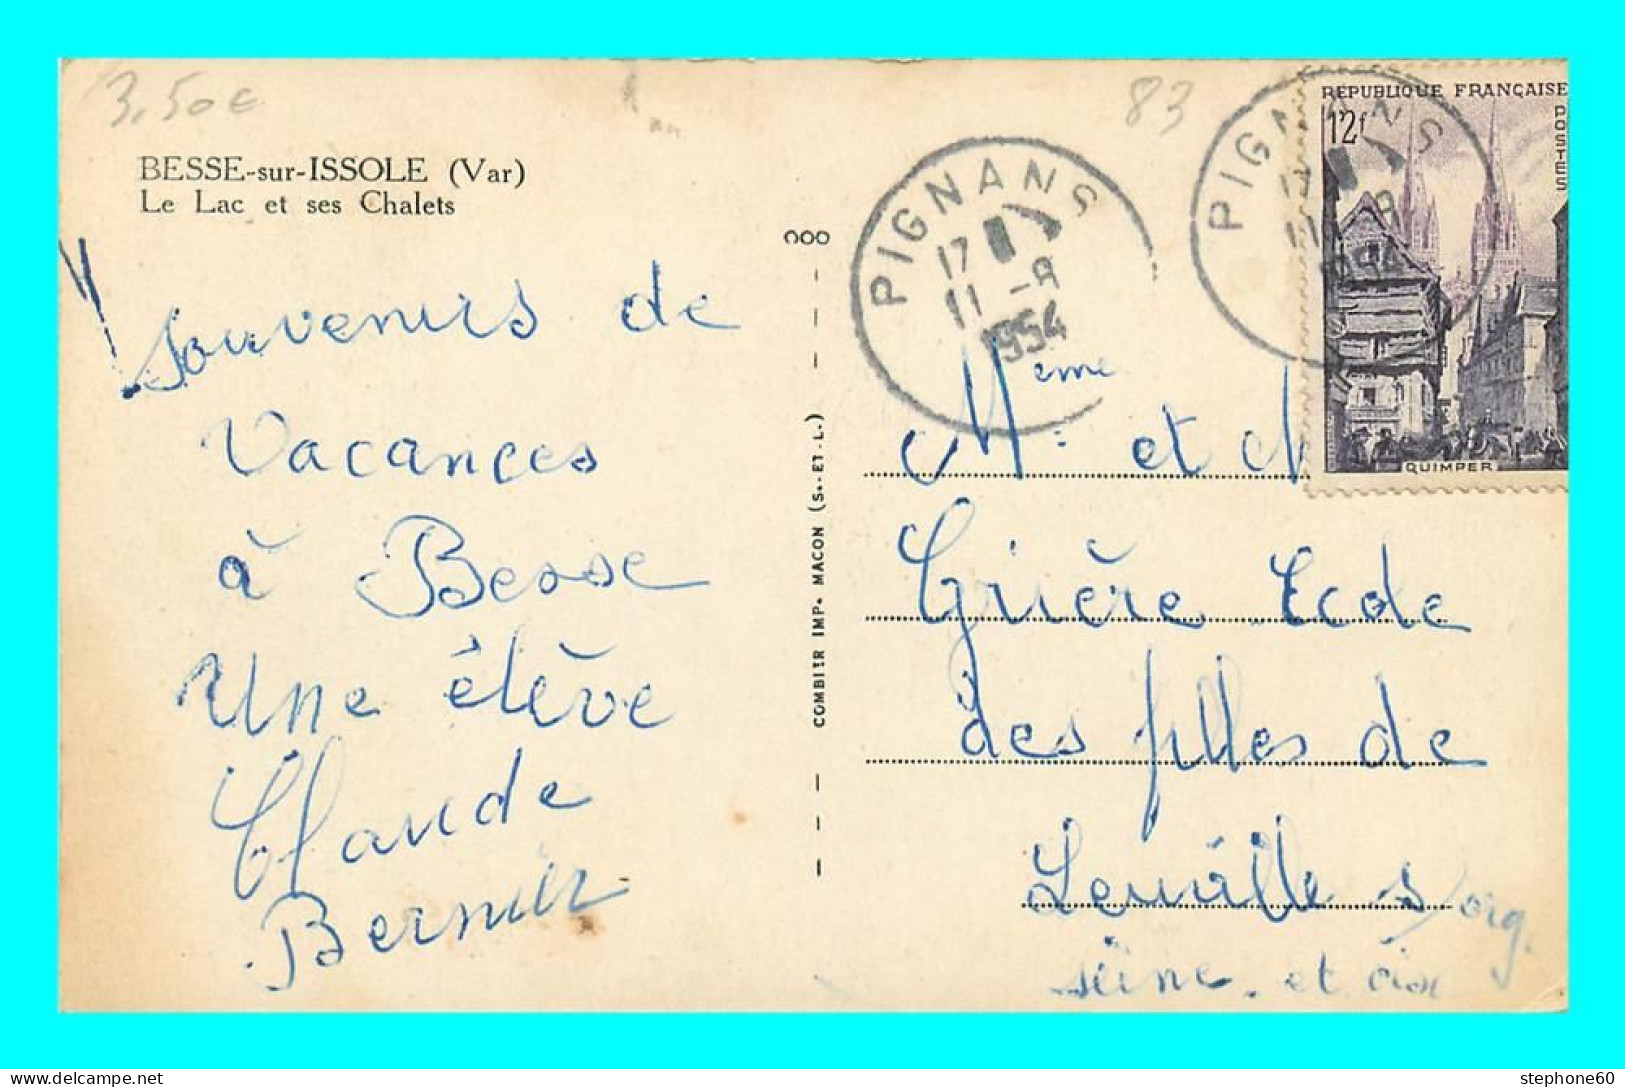 3,50€
83
BESSE-sur-ISSOLE (Var)
Le Lac et ses Chalets
Souvenirs de
Vacances
à Besse
Une élève
Claude
Bernier
COMBIER IMP. MACON (S.-ET-L.)
PIGNANS
17
11 -8
1954
PIGNANS
17
11 -8
1954
REPUBLIQUE FRANÇAISE
12f
POSTES
QUIMPER
Mr et Meme
Grière Ecole
des filles de
Leuville s/org.
seine et oise
stephone60